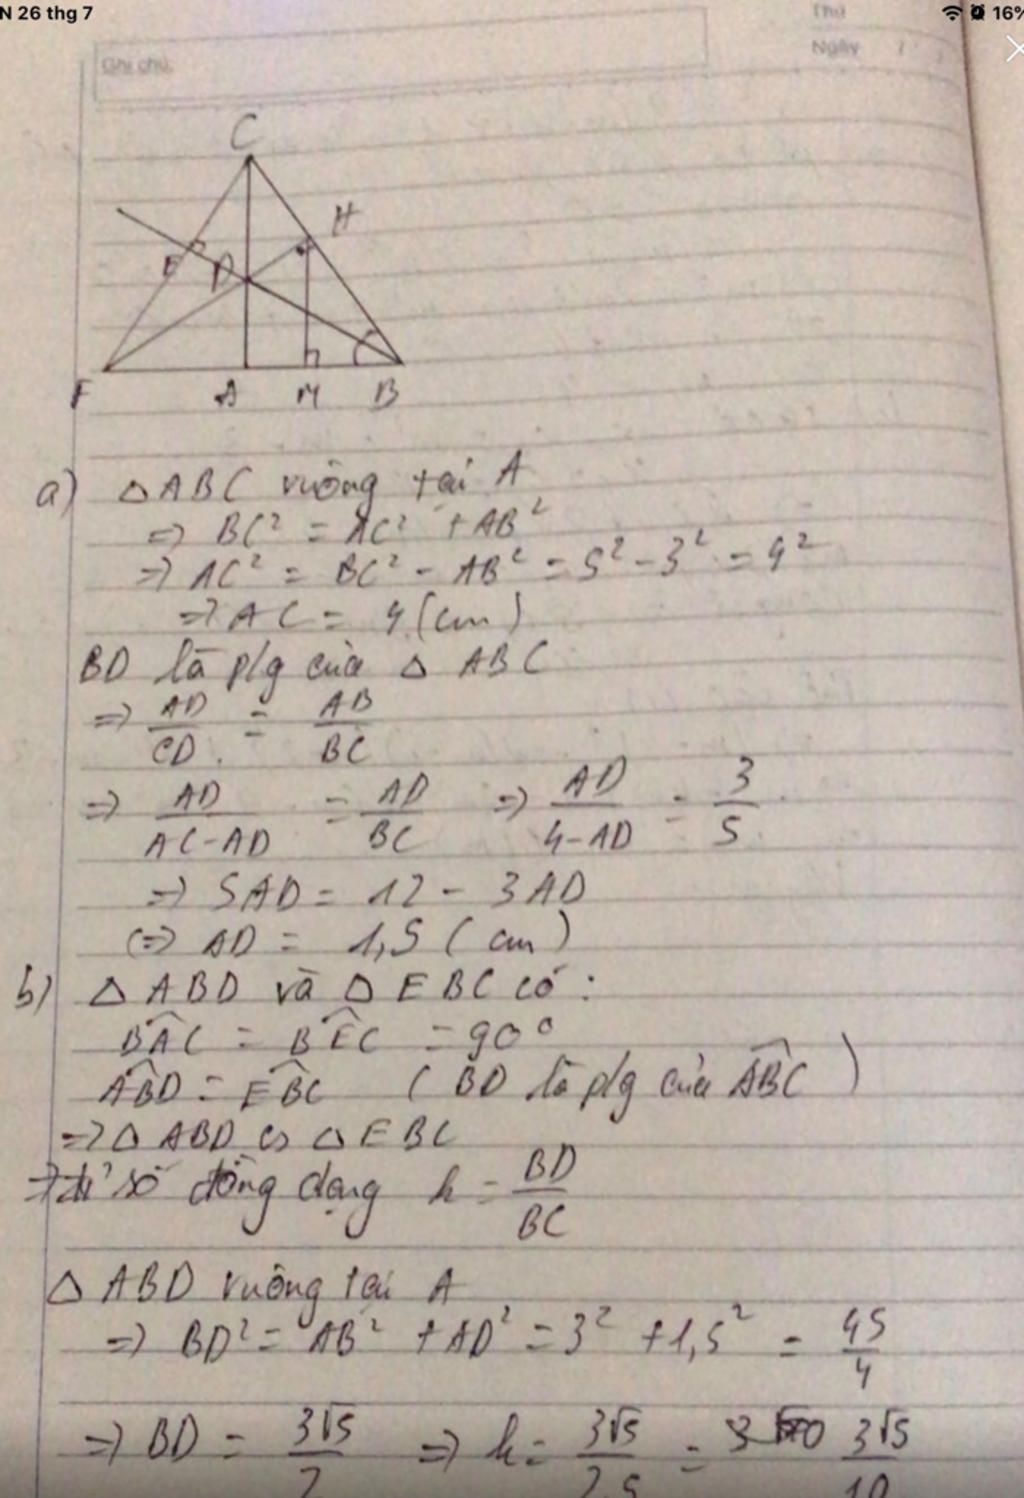 N 26 thg 7
16%
Thứ
Ghi chú:
Ngày /
C
H
E D
F A M B
a) △ABC vuông tại A
=> BC² = AC² + AB²
=> AC² = BC² - AB² = 5² - 3² = 4²
=> AC = 4 (cm)
BD là p/g của △ ABC
=> AD/CD = AB/BC
=> AD/AC-AD = AD/BC => AD/4-AD = 3/5
=> 5AD = 12 - 3AD
(=> AD = 1,5 (cm)
b) △ ABD và △ EBC có:
BAC^ = BEC^ = 90°
ABD^ = EBC^ ( BD là p/g của ABC^ )
=> △ ABD ᔕ △ EBC
=> tỉ số đồng dạng k = BD/BC
△ ABD vuông tại A
=> BD² = AB² + AD² = 3² + 1,5² = 45/4
=> BD = 3√5/2 => k = 3√5/2.5 = 3√5/10